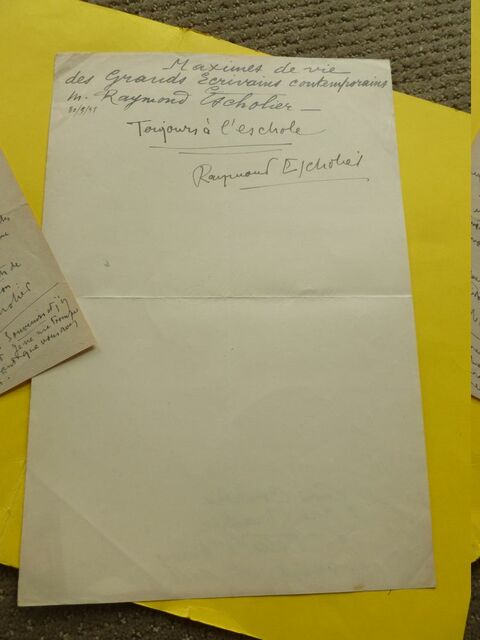 Maximes de vie
des Grands Écrivains contemporains
M. Raymond Escholier —
Toujours à l'eschole
Raymond Escholier
de
Souvenirs